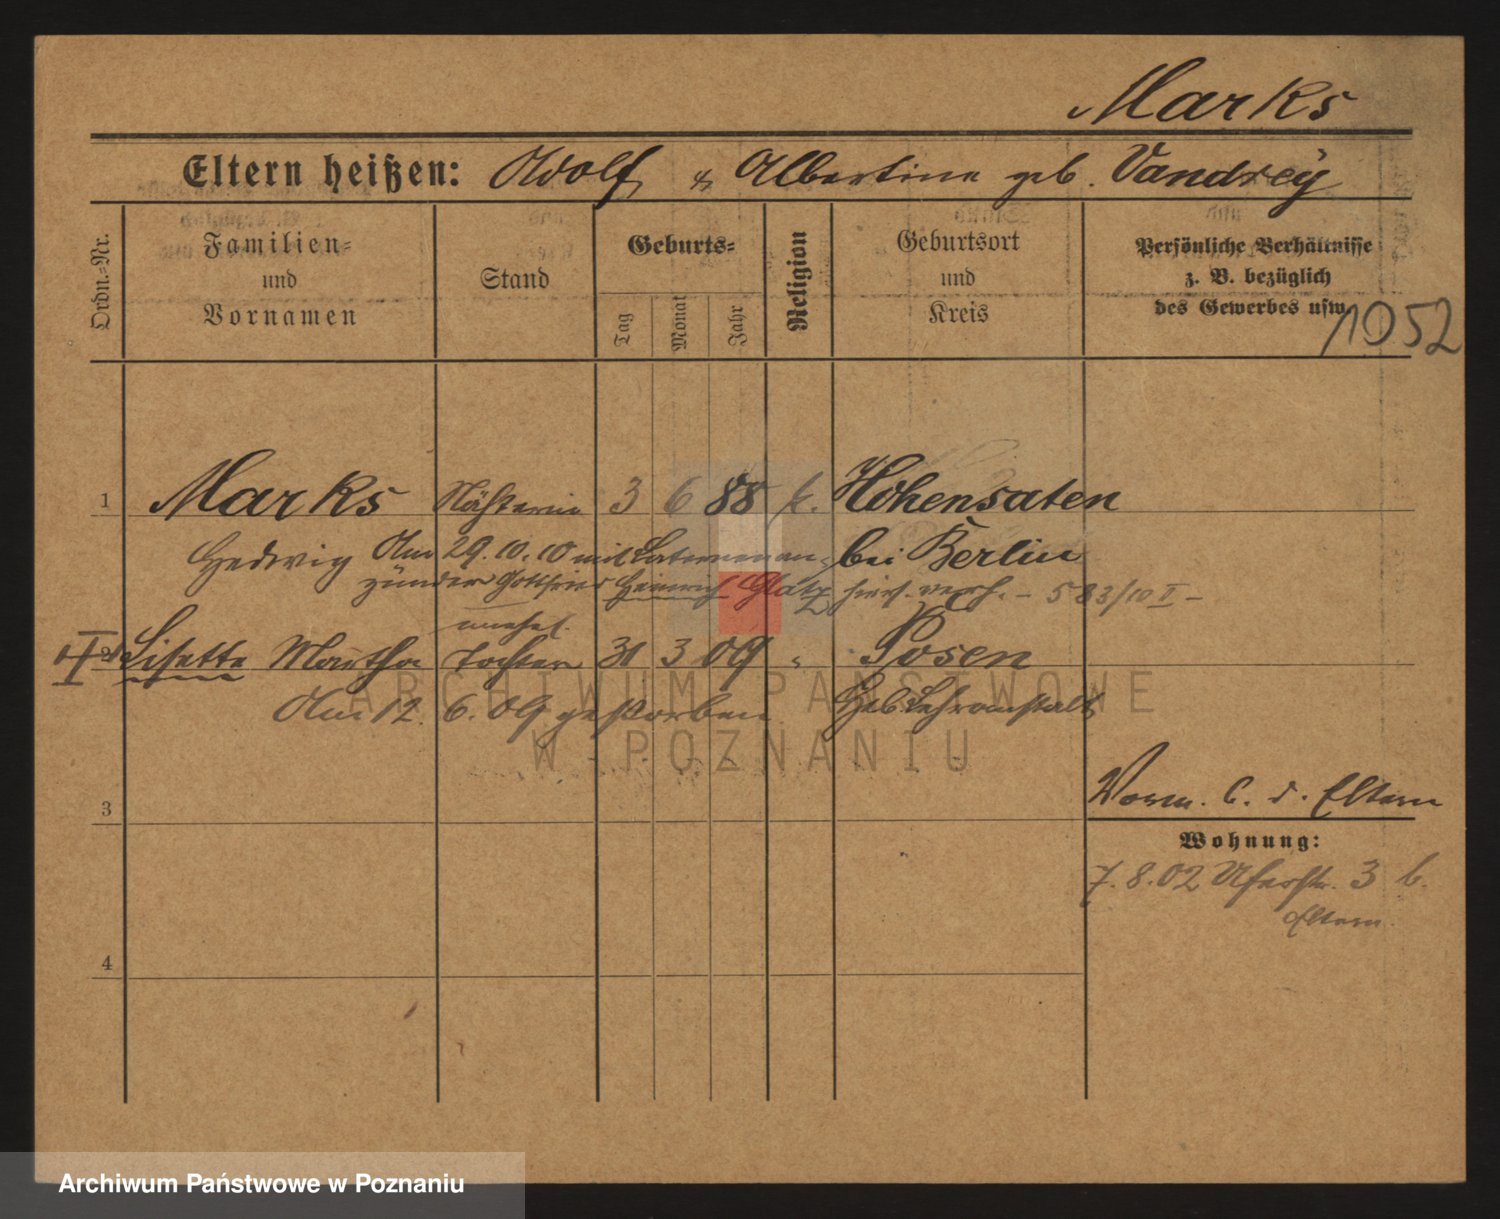 Marks
Eltern heißen: Adolf & Albertine geb. Vandrey
Ordn.=Nr.
Familien=
und
Vornamen
Stand
Geburts=
Tag
Monat
Jahr
Religion
Geburtsort
und
Kreis
Persönliche Verhältnisse
z. B. bezüglich
des Gewerbes usw.
1052
1 Marks Näherin 3 6 88 k. Hohensaten
Hedwig Am 29.10.10 mit Laternenan= bei Berlin
zünder Gottfried Heinrich Glatz hier verh. – 583/10 I –
unehel.
2 Lisette Martha Tochter 31 3 09 " Posen
Am 12. 6. 09 gestorben Heb. Lehranstalt
ARCHIWUM PAŃSTWOWE
W POZNANIU
3
Vorm. C. d. Eltern
Wohnung:
7.8.02 Uferstr. 3 b.
Eltern.
4
Archiwum Państwowe w Poznaniu